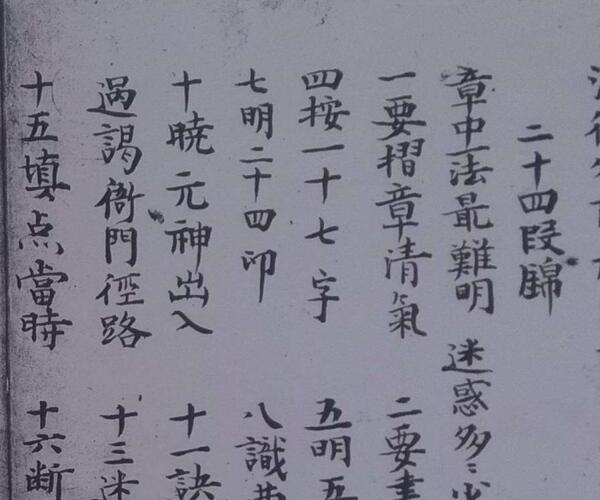 二十四段錦
章中一法最難明 迷惑多々
一要摺章清氣 二要
四按一十七字 五明五
七明二十四印 八識
十曉元神出入 十一訣
遇謁衙門徑路 十三迷
十五填点當時 十六断